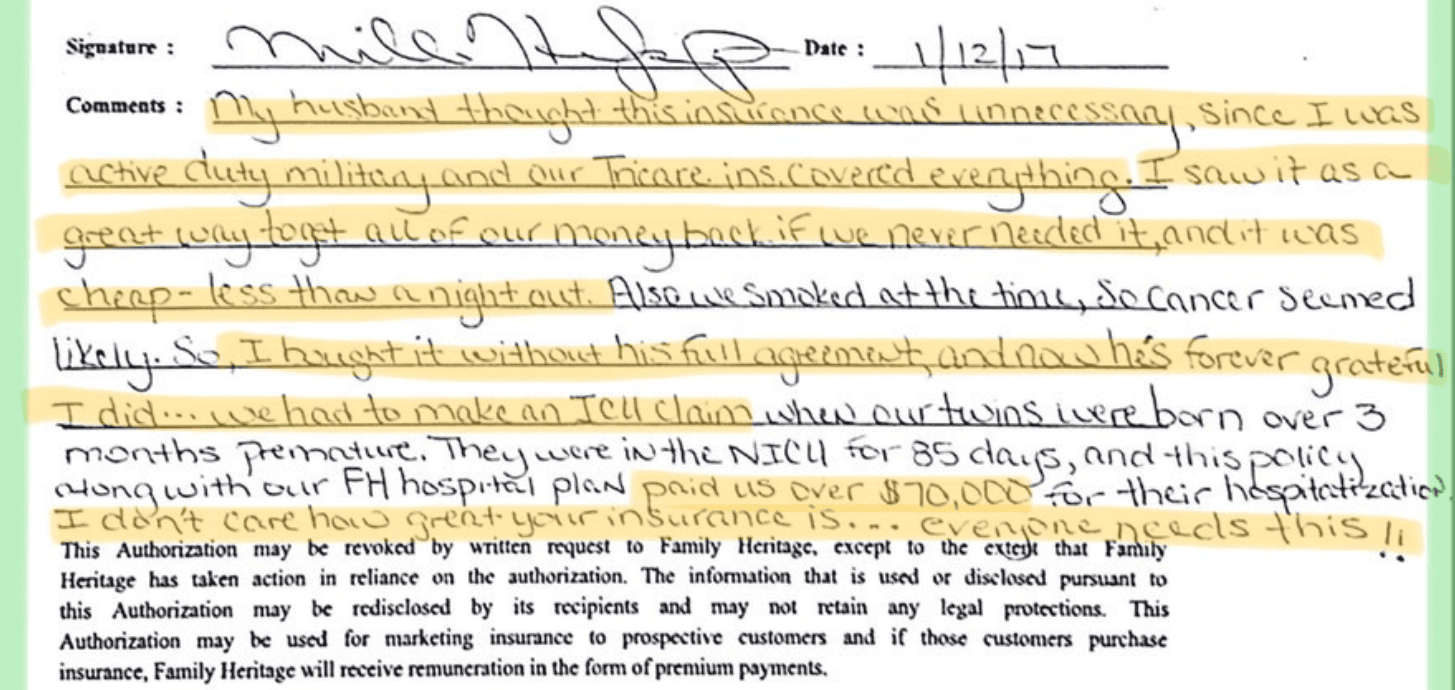 Signature : Date : 1/12/17
Comments : My husband thought this insurance was unnecessary, since I was
active duty military and our Tricare ins. covered everything. I saw it as a
great way to get all of our money back if we never needed it, and it was
cheap - less than a night out. Also we smoked at the time, so cancer seemed
likely. So, I bought it without his full agreement, and now he's forever grateful
I did... we had to make an ICU claim when our twins were born over 3
months premature. They were in the NICU for 85 days, and this policy
along with our FH hospital plan paid us over $70,000 for their hospitatization
I don't care how great your insurance is... everyone needs this!!
This Authorization may be revoked by written request to Family Heritage, except to the extent that Family
Heritage has taken action in reliance on the authorization. The information that is used or disclosed pursuant to
this Authorization may be redisclosed by its recipients and may not retain any legal protections. This
Authorization may be used for marketing insurance to prospective customers and if those customers purchase
insurance, Family Heritage will receive remuneration in the form of premium payments.